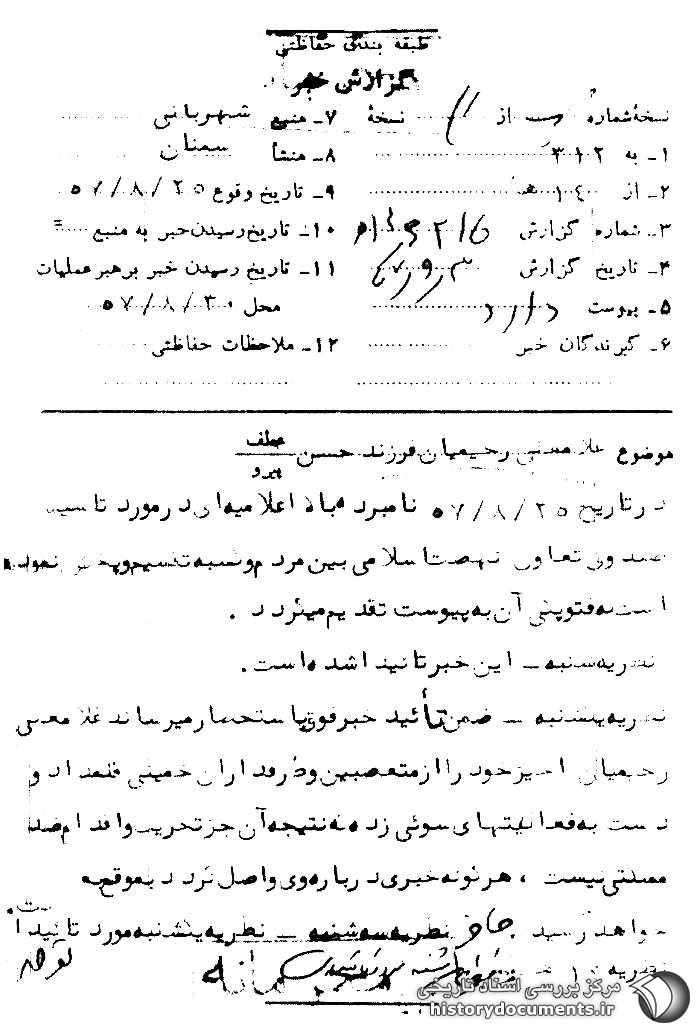 طبقه بندی حفاظتی
گزارش خبر
نسخهٔ شماره از نسخهٔ
۱ـ به ۳۱۲
۲ـ از ۱۰ هـ
۳ـ شماره گزارش
۴ـ تاریخ گزارش
۵ـ پیوست دارد
۶ـ گیرندگان خبر
۷ـ منبع شهربانی
۸ـ منشأ سمنان
۹ـ تاریخ وقوع ۵۷/۸/۲۵
۱۰ـ تاریخ رسیدن خبر به منبع
۱۱ـ تاریخ رسیدن خبر برهبر عملیات
محل ۵۷/۸/۳۰
۱۲ـ ملاحظات حفاظتی
موضوع غلامعلی رحیمیان فرزند حسن
عطف
پیرو
در تاریخ ۵۷/۸/۲۵ نامبرده بالا اعلامیه‌ای در مورد تاسیس
صندوق تعاون نهضت اسلامی بین مردم و کسبه تقسیم و پخش نموده
است که فتوکپی آن به پیوست تقدیم میگردد .
نظریه شنبه ـ این خبر تائید شده است .
نظریه یکشنبه ـ ضمن تأئید خبر فوق باستحضار میرساند غلامعلی
رحیمیان اخیر خود را از متعصبین و طرفداران خمینی قلمداد و
دست به فعالیتهای سوئی زده که نتیجه آن جز تخریب و اقدام ضد
مملکتی نیست ، هرگونه خبری درباره وی واصل گردد بموقع به
عرض خواهد رسید نظریه سه شنبه ـ نظریه یکشنبه مورد تائید است .
مرکز بررسی اسناد تاریخی
historydocuments.ir